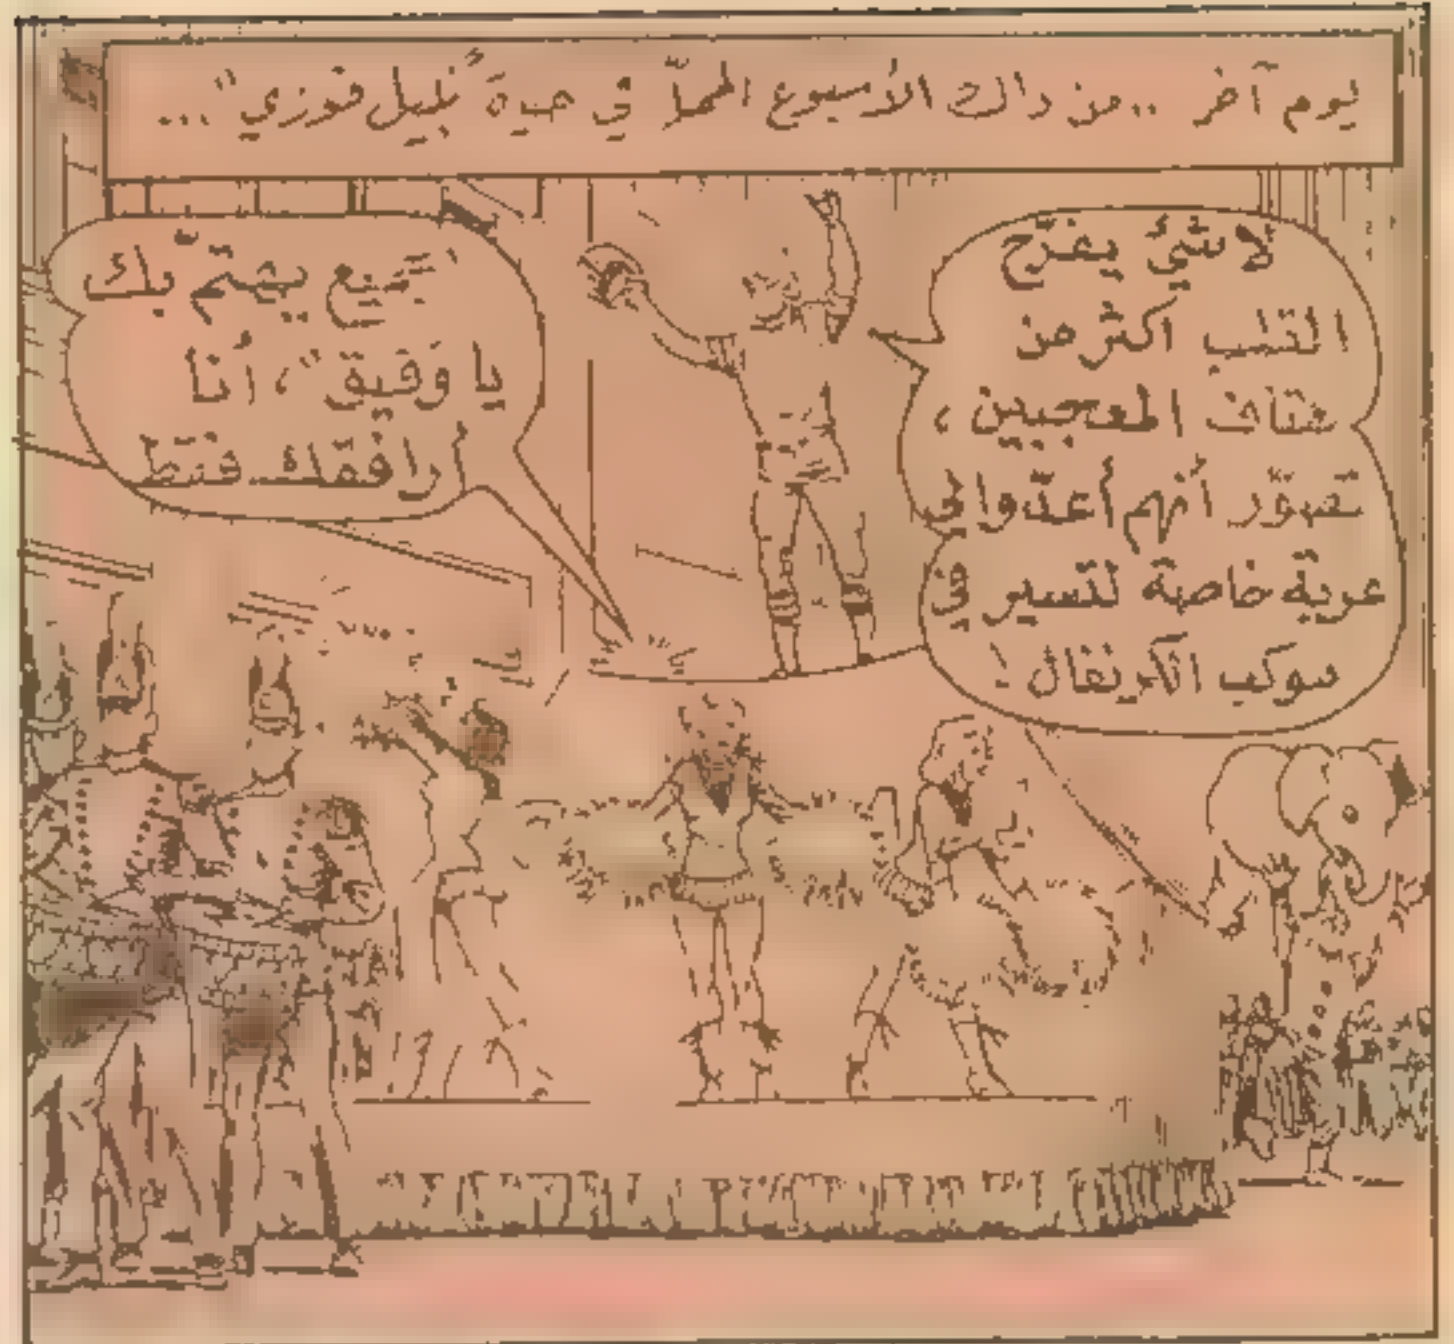 يوم آخر .. من ذاك الأسبوع الممل في حياة "نبيل فوزي" ...
لا شيء يفرح
القلب اكثر من
هتاف المعجبين ،
تصوّر أنهم أعدّوا لي
عربة خاصة لتسير في
موكب الكرنفال !
الجميع يهتمّ بك
يا "رفيق" ، أنا
أرافقك فقط